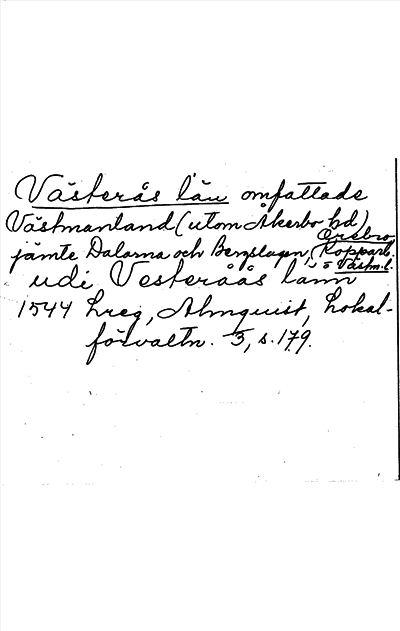 Västerås län omfattade
Västmanland (utom Åkerbo hd)
jämte Dalarna och Bergslagen, Örebro
Kopparb.
o Västm.l.
udi Vesteråås lann
1544 Lreg, Almquist, Lokal-
förvaltn. 3, s. 179.